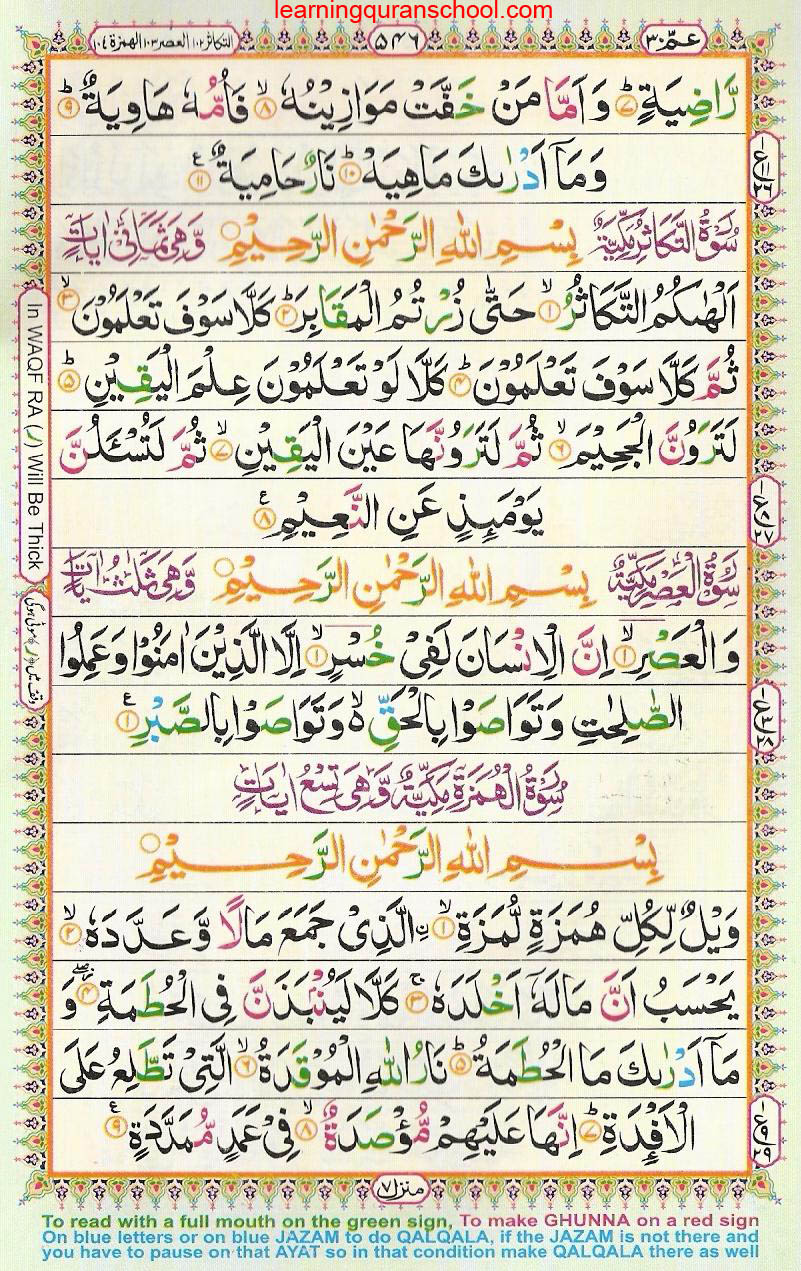 learningquranschool.com
التكاثر١٠٢ العصر١٠٣ الهمزة١٠٤
٥٤٦
عـمّ ٣٠
رَّاضِيَةٍ ؕ‏﴿۷﴾ وَ اَمَّا مَنْ خَفَّتْ مَوَازِيْنُهٗ ۙ‏﴿۸﴾ فَاُمُّهٗ هَاوِيَةٌ ؕ‏﴿۹﴾
وَمَاۤ اَدْرٰىكَ مَا هِيَهْ ؕ‏﴿۱۰﴾ نَارٌ حَامِيَةٌ ‏﴿۱۱﴾
سُوْرَةُ التَّكَاثُرِ مَكِّيَّةٌ بِسْمِ اللهِ الرَّحْمٰنِ الرَّحِيْمِ وَّهِىَ ثَمَانِىْ اٰيَاتٍ
اَلْهٰىكُمُ التَّكَاثُرُ ۙ‏﴿۱﴾ حَتّٰى زُرْتُمُ الْمَقَابِرَ ؕ‏﴿۲﴾ كَلَّا سَوْفَ تَعْلَمُوْنَ ۙ‏﴿۳﴾
ثُمَّ كَلَّا سَوْفَ تَعْلَمُوْنَ ؕ‏﴿۴﴾ كَلَّا لَوْ تَعْلَمُوْنَ عِلْمَ الْيَقِيْنِ ؕ‏﴿۵﴾
لَتَرَوُنَّ الْجَحِيْمَ ۙ‏﴿۶﴾ ثُمَّ لَتَرَوُنَّهَا عَيْنَ الْيَقِيْنِ ۙ‏﴿۷﴾ ثُمَّ لَتُسْئَلُنَّ
يَوْمَئِذٍ عَنِ النَّعِيْمِ ‏﴿۸﴾
سُوْرَةُ الْعَصْرِ مَكِّيَّةٌ بِسْمِ اللهِ الرَّحْمٰنِ الرَّحِيْمِ وَّهِىَ ثَلٰثُ اٰيَاتٍ
وَالْعَصْرِ ۙ‏﴿۱﴾ اِنَّ الْاِنْسَانَ لَفِىْ خُسْرٍ ۙ‏﴿۱﴾ اِلَّا الَّذِيْنَ اٰمَنُوْا وَ عَمِلُوا
الصّٰلِحٰتِ وَتَوَاصَوْا بِالْحَقِّ ۙ۬ وَتَوَاصَوْا بِالصَّبْرِ ‏﴿۱﴾
سُوْرَةُ الْهُمَزَةِ مَكِّيَّةٌ وَّهِىَ تِسْعُ اٰيَاتٍ
بِسْمِ اللهِ الرَّحْمٰنِ الرَّحِيْمِ
وَيْلٌ لِّكُلِّ هُمَزَةٍ لُّمَزَةِ ۙ‏﴿۱﴾ ۨالَّذِىْ جَمَعَ مَالًا وَّعَدَّدَهٗ ۙ‏﴿۲﴾
يَحْسَبُ اَنَّ مَالَهٗۤ اَخْلَدَهٗ ۚ‏﴿۳﴾ كَلَّا لَيُنْۢبَذَنَّ فِى الْحُطَمَةِ ۖ‏﴿۴﴾ وَ
مَاۤ اَدْرٰىكَ مَا الْحُطَمَةُ ؕ‏﴿۵﴾ نَارُ اللهِ الْمُوْقَدَةُ ۙ‏﴿۶﴾ الَّتِىْ تَطَّلِعُ عَلَى
الْاَفْئِدَةِ ؕ‏﴿۷﴾ اِنَّهَا عَلَيْهِمْ مُّؤْصَدَةٌ ۙ‏﴿۸﴾ فِىْ عَمَدٍ مُّمَدَّدَةٍ ‏﴿۹﴾
منزل ٧
In WAQF RA (ر) Will Be Thick
To read with a full mouth on the green sign, To make GHUNNA on a red sign
On blue letters or on blue JAZAM to do QALQALA, if the JAZAM is not there and
you have to pause on that AYAT so in that condition make QALQALA there as well